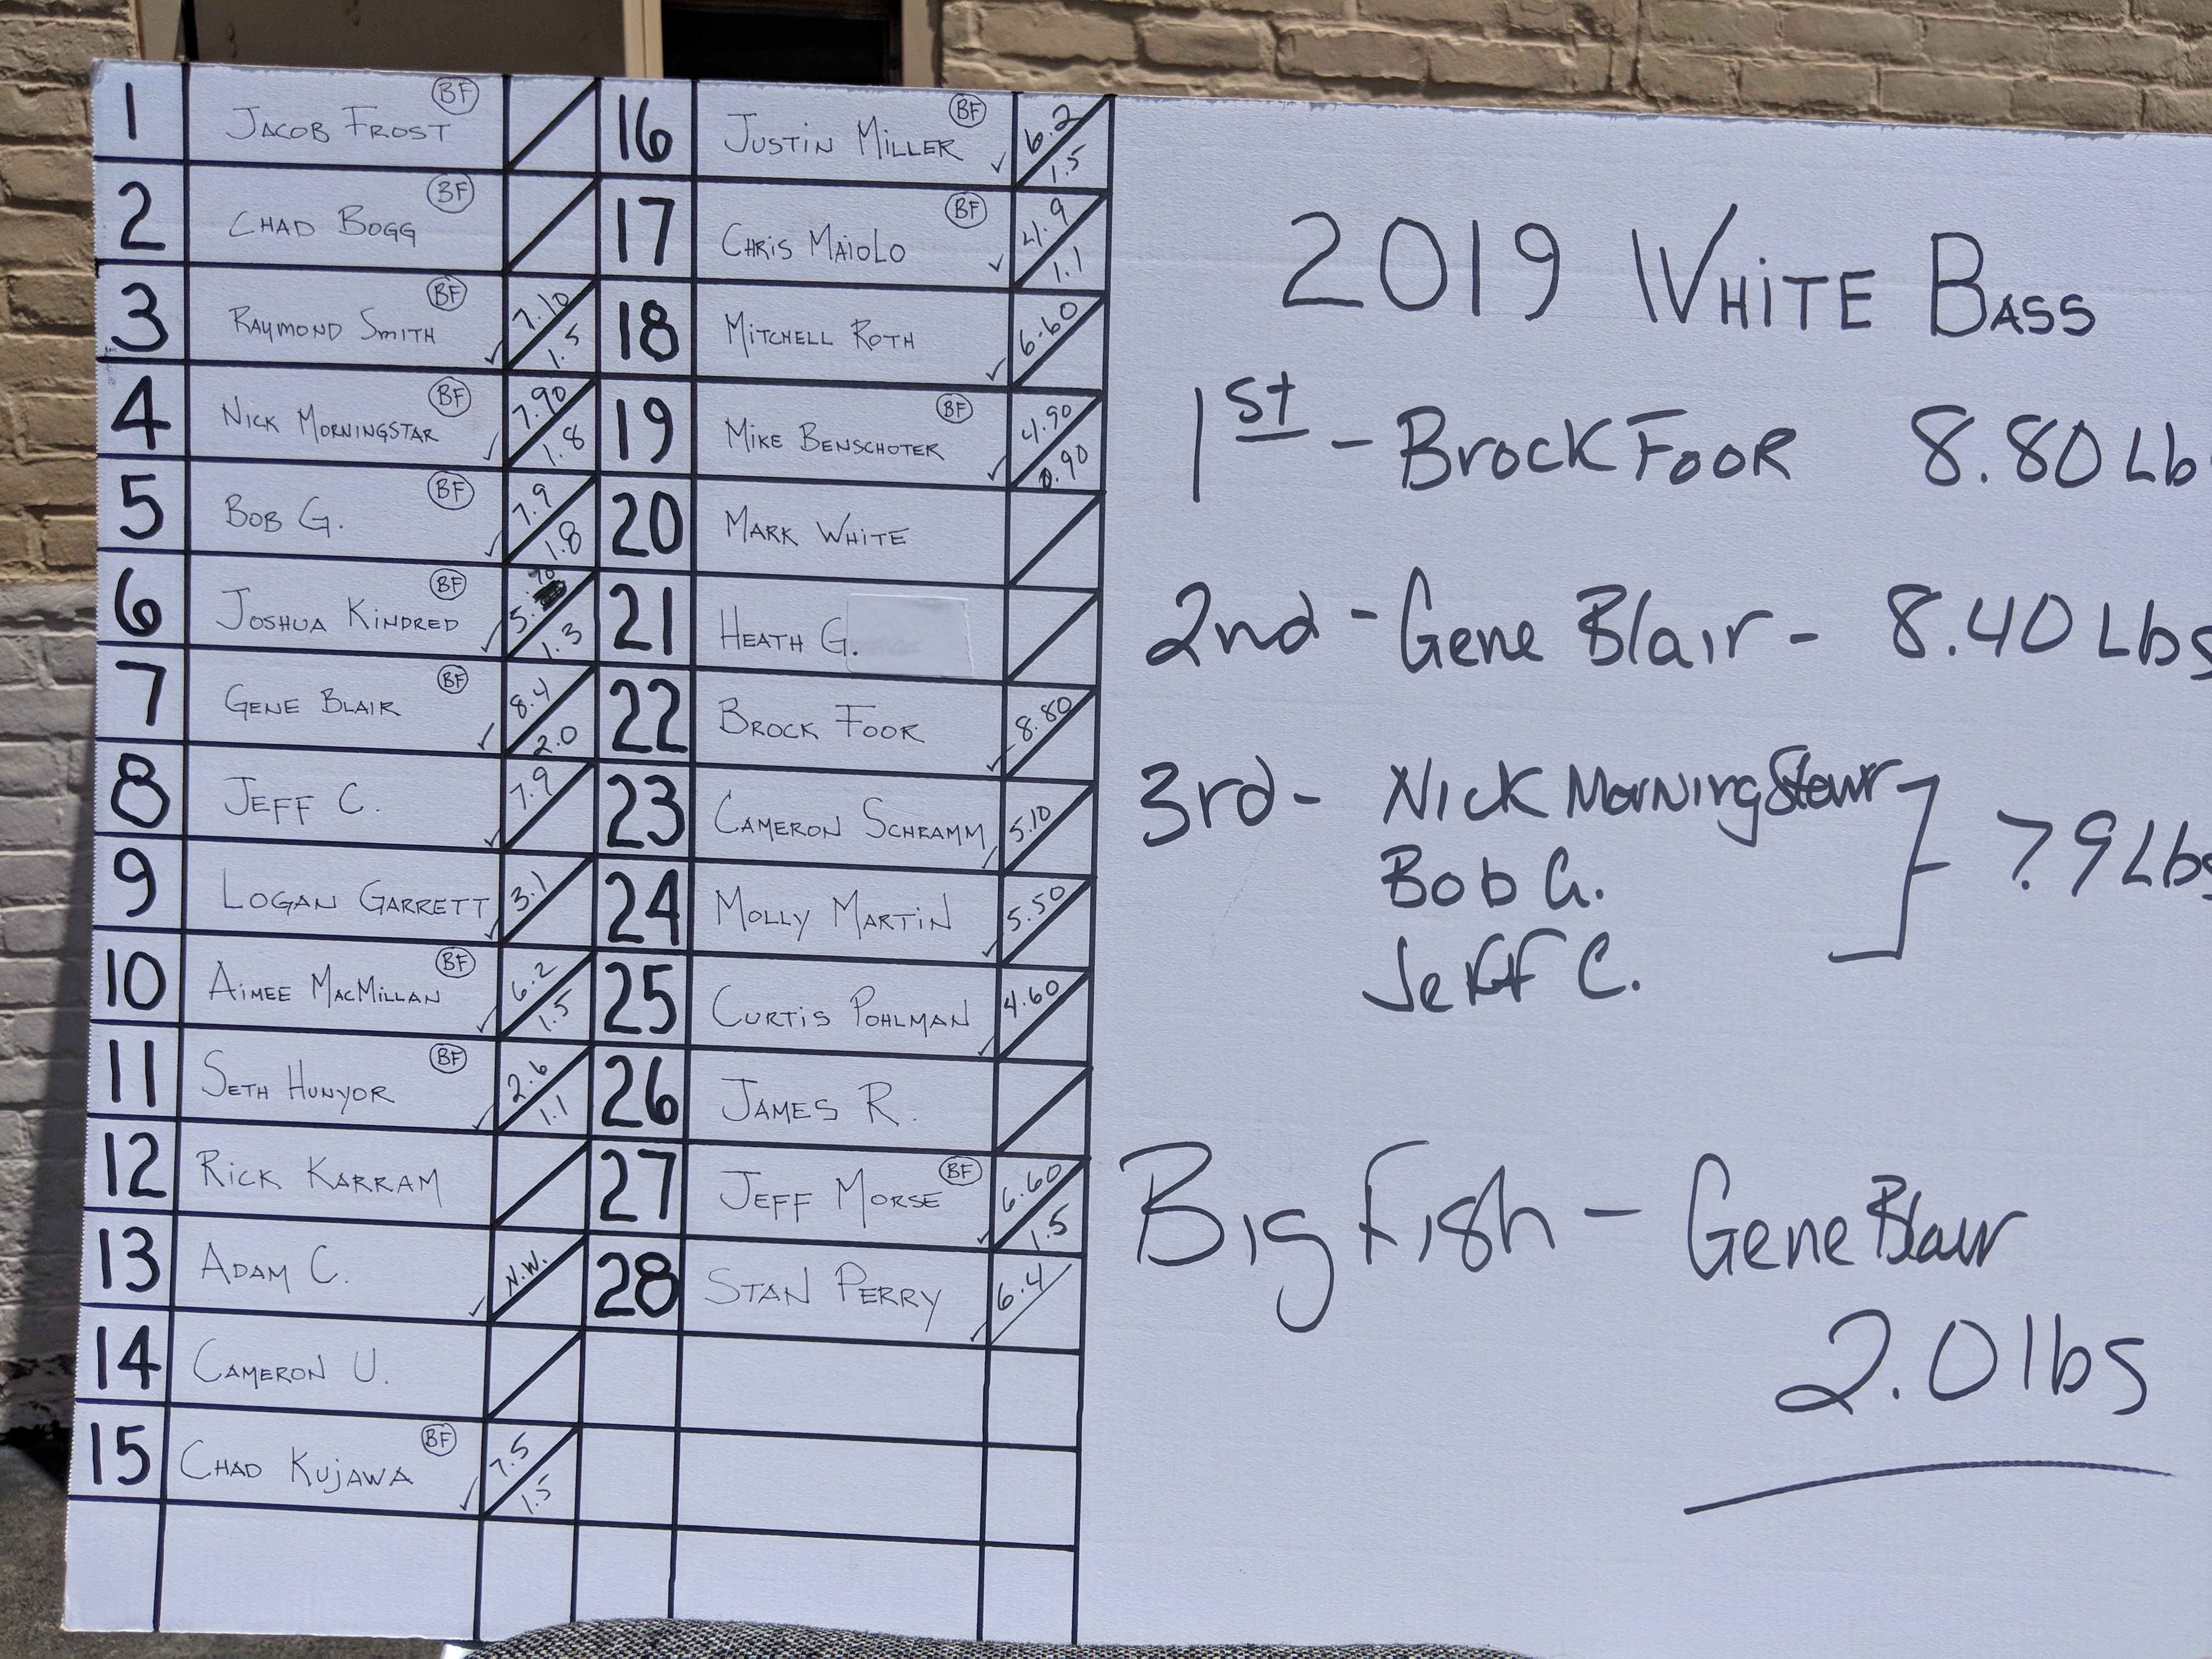 1 JACOB FROST BF
2 CHAD BOGG BF
3 RAYMOND SMITH BF 7.10 1.5
4 NICK MORNINGSTAR BF 7.90 1.8
5 BOB G. BF 7.9 1.8
6 JOSHUA KINDRED BF 5.70 1.3
7 GENE BLAIR BF 8.4 2.0
8 JEFF C. 7.9
9 LOGAN GARRETT 3.1
10 AIMEE MACMILLAN BF 6.2 1.5
11 SETH HUNYOR BF 2.6 1.1
12 RICK KARRAM
13 ADAM C. N.W.
14 CAMERON U.
15 CHAD KUJAWA BF 7.5 1.5
16 JUSTIN MILLER BF 6.2 1.5
17 CHRIS MAIOLO BF 4.9 1.1
18 MITCHELL ROTH 6.60
19 MIKE BENSCHOTER BF 4.90 0.90
20 MARK WHITE
21 HEATH G.
22 BROCK FOOR 8.80
23 CAMERON SCHRAMM 5.10
24 MOLLY MARTIN 5.50
25 CURTIS POHLMAN 4.60
26 JAMES R.
27 JEFF MORSE BF 6.60 1.5
28 STAN PERRY 6.4
2019 WHITE BASS
1st - Brock Foor 8.80 Lb
2nd - Gene Blair - 8.40 Lbs
3rd - Nick MorningStar
Bob G.
Jeff C.
7.9 Lbs
Big Fish - Gene Blair
2.0 lbs